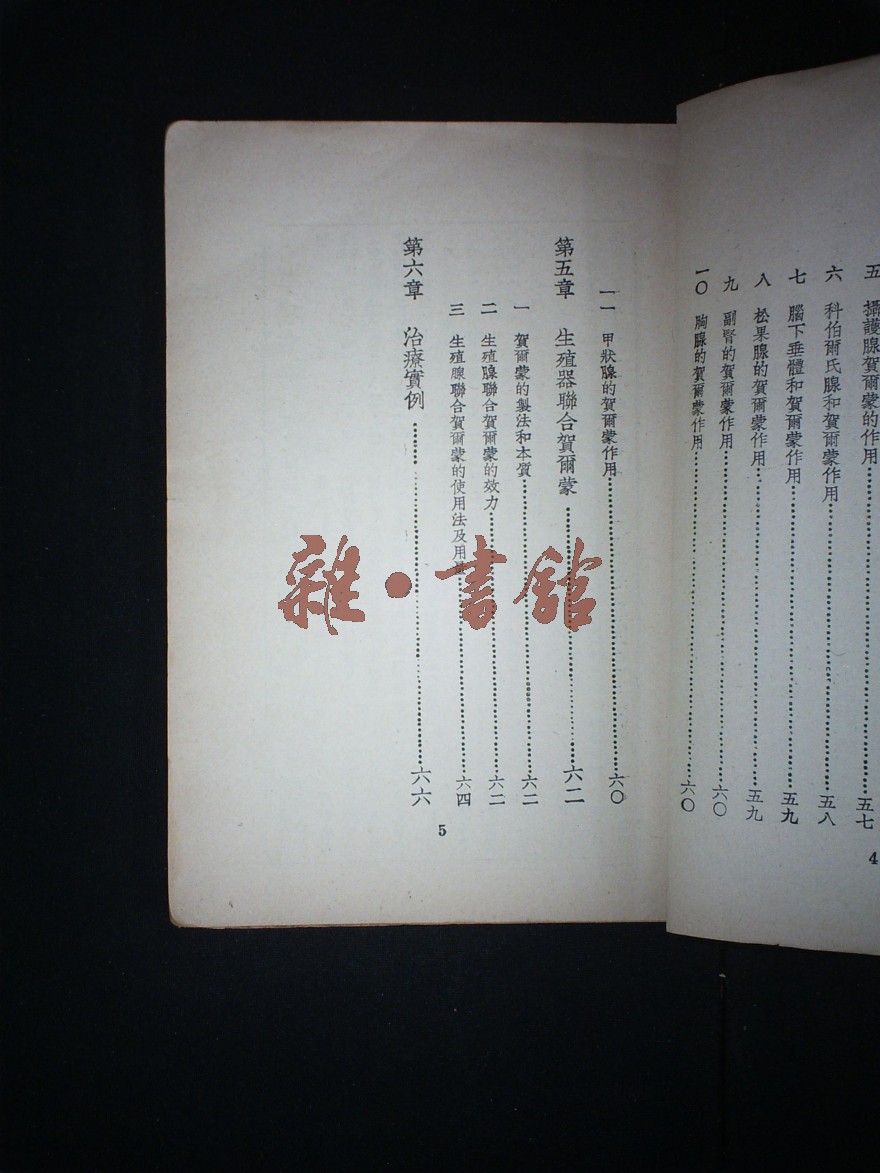 五 攝護腺賀爾蒙的作用……五七
六 科伯爾氏腺和賀爾蒙作用……五八
七 腦下垂體和賀爾蒙作用……五九
八 松果腺的賀爾蒙作用……五九
九 副腎的賀爾蒙作用……六〇
一〇 胸腺的賀爾蒙作用……六〇
4
一一 甲狀腺的賀爾蒙作用……六〇
第五章 生殖器聯合賀爾蒙……六二
一 賀爾蒙的製法和本質……六二
二 生殖腺聯合賀爾蒙的效力……六二
三 生殖腺聯合賀爾蒙的使用法及用量……六四
第六章 治療實例……六六
5
雜·書館